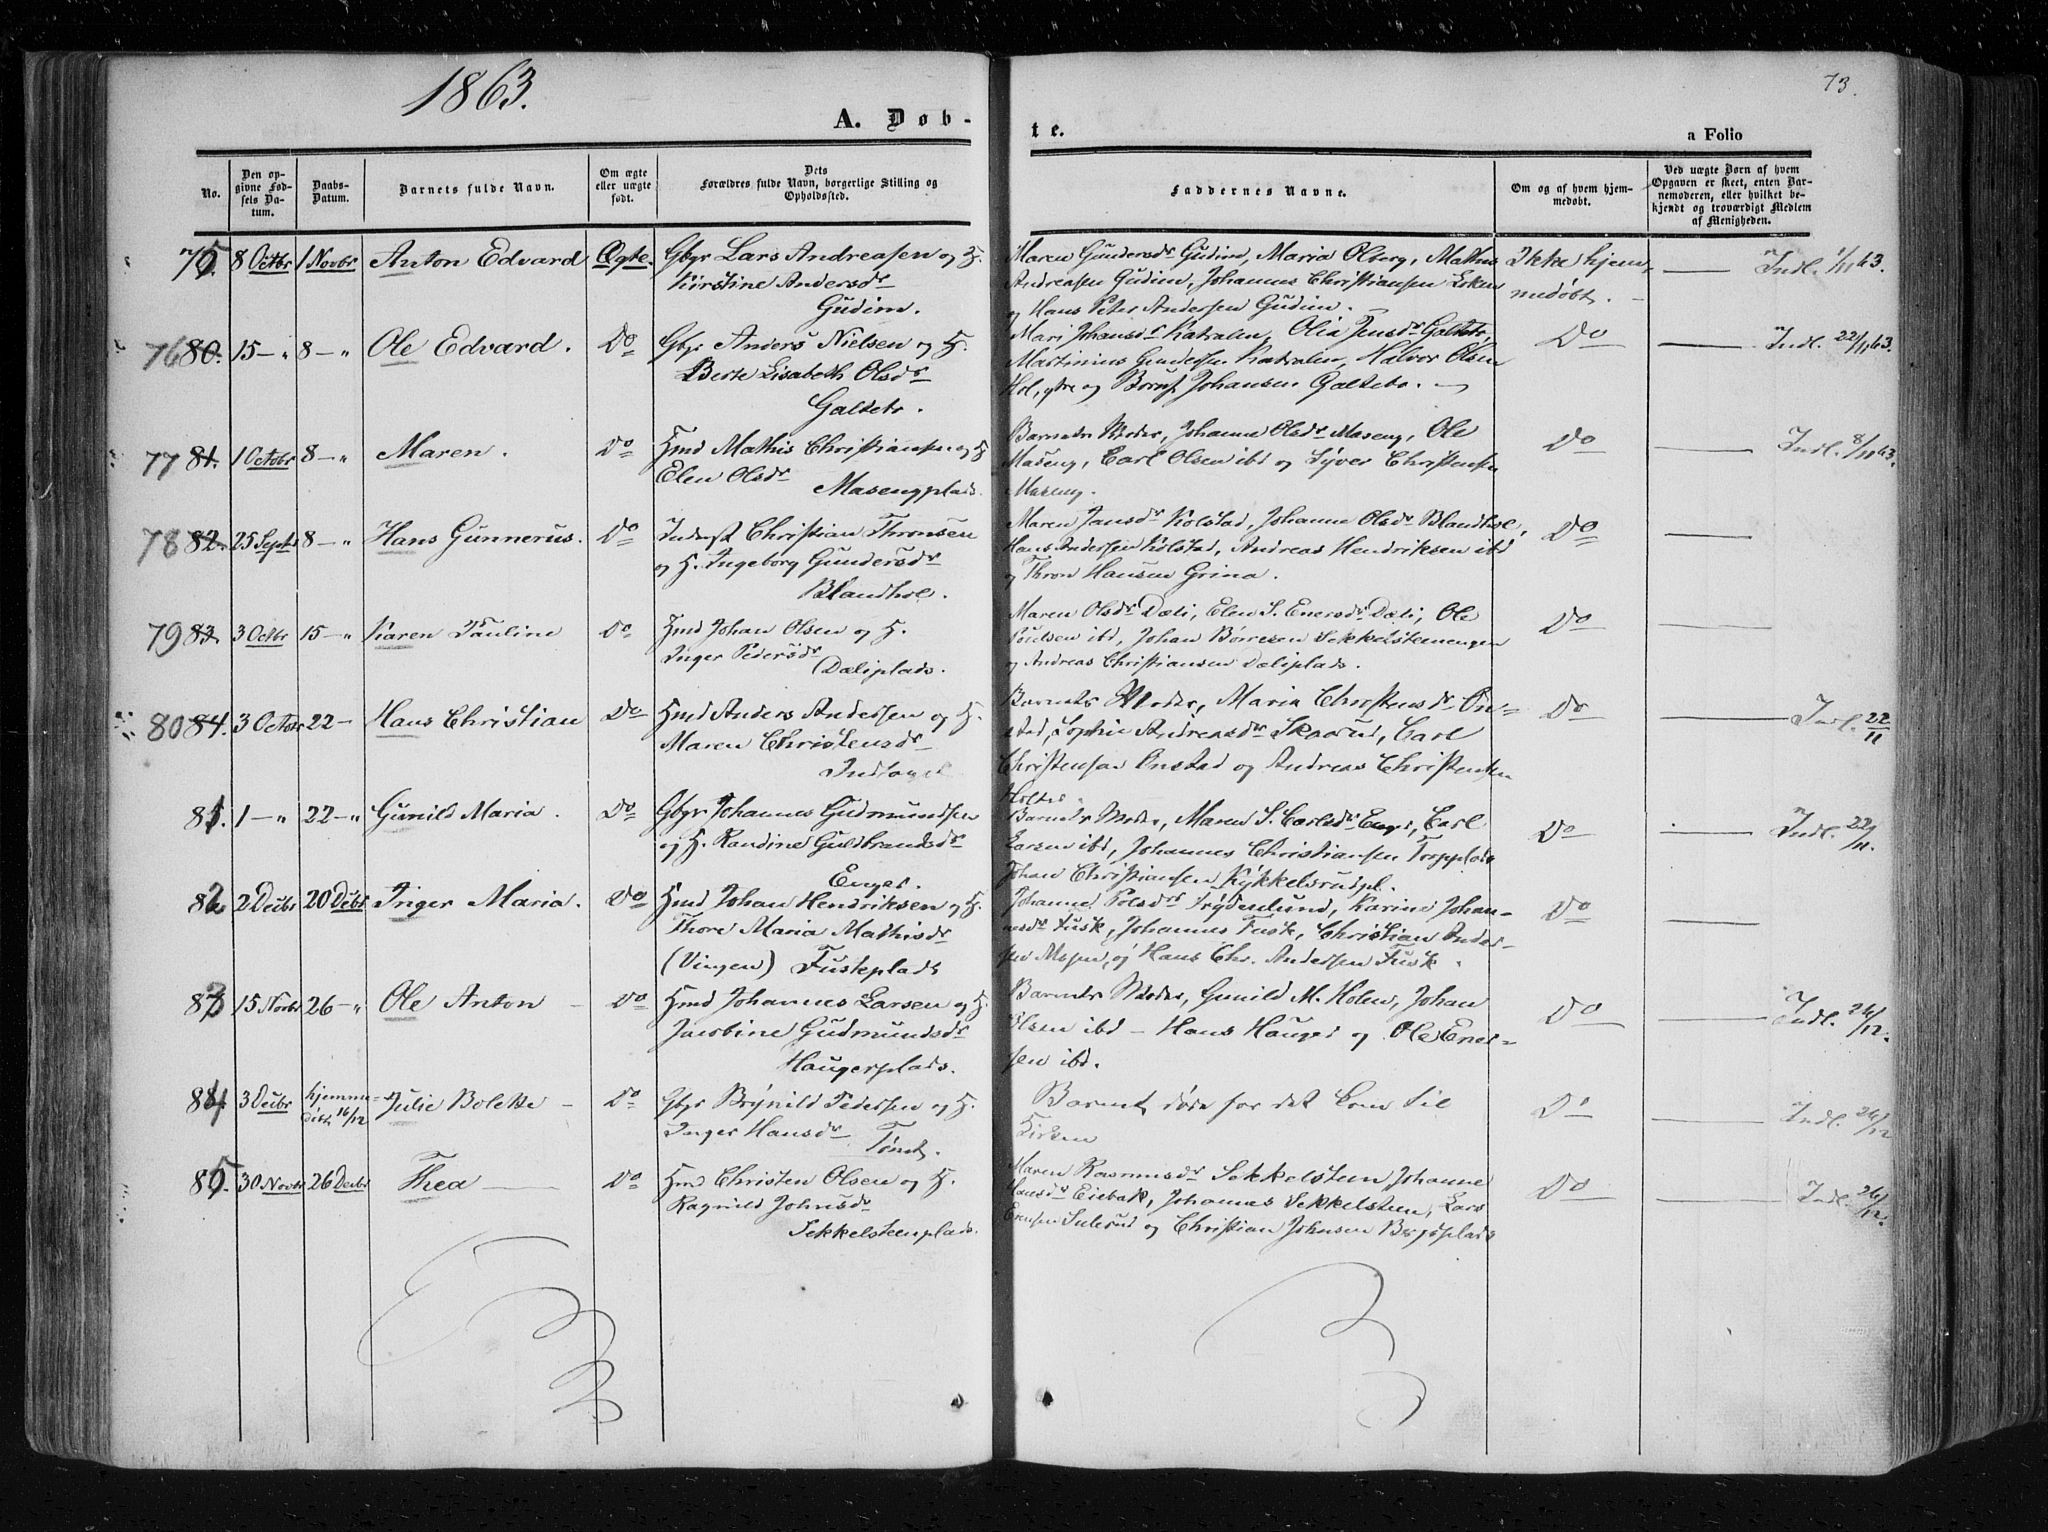 1863.
73.
A. Døb-
te.
a Folio
No.
Den op-
givne Fød-
sels Da-
tum.
Daabs-
Datum.
Barnets fulde Navn.
Om ægte
eller uægte
født.
Dets
Forældres fulde Navn, borgerlige Stilling og
Opholdssted.
Faddernes Navne.
Om og af hvem hjem-
medøbt.
Ved uægte Børn af hvem
Opgaven er skeet, enten Bar-
nemoderen, eller hvilket be-
kjendt og troværdigt Medlem
af Menigheden.
75. 8 Octbr 1 Novbr Anton Edvard Ægte. Gbgr Lars Andreasen og H.
Kirstine Andersdr
Gudim.
Maren Gundersdr Gudim, Maria Olberg, Mathis
Andreasen Gudim, Johannes Christiansen Loken
og Hans Peter Andersen Gudim.
Ikke hjem-
medøbt.
Indl. 1/11 63.
76 80. 15 — " 8 — " Ole Edvard. Do Gbgr Anders Nielsen og H.
Berte Lisabeth Olsdr
Galtebr.
Mari Johansdr Katralen, Olia Jensdr Galtebr,
Martinius Gundersen Katralen, Halvor Olsen
Hol, og Johansen Galtebr.
Do
Indl. 22/11 63.
77 81. 1 Octobr 8 — " Maren. Do Hmd Mathis Christiansen og H
Elen Olsdr
Masengplads.
Barnets Moder, Johanne Olsdr Maseng, Ole
Maseng, Carl Olsen ibd og Syver Christensen
Maseng.
Do
Indl. 8/11 63.
78 82. 25 Septr 8 — " Hans Gunnerus. Do Inderst Christian Thronsen
og H. Ingeborg Gundersdr
Blandhol.
Maren Jansdr Kolstad, Johanne Olsdr Blandhol,
Hans Andersen Kolstad, Andreas Hendriksen ibd
og Thron Hansen Grina.
Do
79 83. 3 Octbr 15 — " Karen Pauline Do Hmd Johan Olsen og H.
Inger Pedersdr
Dæliplads.
Maren Olsdr Dæli, Elen S. Enersdr Dæli, Ole
Poulsen ibd, Johan Børresen Sekkelsteenengen
og Andreas Christiansen Dæliplads.
Do
80 84. 3 Octobr 22 — Hans Christian Do Hmd Anders Andersen og H.
Maren Christensdr
Barnets Moder, Maria Christensdr On-
stad, Sophie Andreasdr Skaarud, Carl
Christensen Onstad og Andreas Christensen
Holter.
Do
Indl. 22/11
81. 1 — " 22 — " Gunild Maria. Do Gbgr Johannes Gudmundsen
og H. Randine Guldbrandsdr
Enger.
Barnets Moder, Maren S. Carlsdr Enger, Carl
Larsen ibd, Johannes Christiansen Torpplads
Johan Christiansen Kykkelsrudpl.
Do
Indl. 22/11.
82 2 Decbr 20 Debr Inger Maria. Do Hmd Johan Hendriksen og H.
Thore Maria Mathisdr
(Vingen) Fuskeplads
Johanne Polsdr Frydenlund, Karine Johan-
nesdr Fusk, Johannes Fusk, Christian Ander-
sen Mosen, og Hans Chr. Andersen Fusk.
Do
83 15 Novbr 26 — " Ole Anton Do Hmd Johannes Larsen og H.
Jacobine Gudmundsdr
Haugerplads.
Barnets Moder, Gunild M. Holen, Johan
Olsen ibd — Hans Hauger og Ole Ener-
sen ibd.
Do
Indl. 26/12.
84 3 Decbr hjemme-
døbt 16/12 Julie Bolette Do Gbgr Brynild Pedersen og H.
Inger Hansdr
Tomt.
Barnet døde før det kom til
Kirken
Do
Indl. 26/12
85. 30 Novbr 26 Decbr Thea Do Hmd Christen Olsen og H.
Ragnild Johnsdr
Sekkelsteenplads.
Maren Rasmusdr Sekkelsteen, Johanne
Hansdr Eiebak, Johannes Sekkelsteen, Lars
Ensen Sulerud og Christian Johnsen Bergsplads
Do
Indl. 26/12.